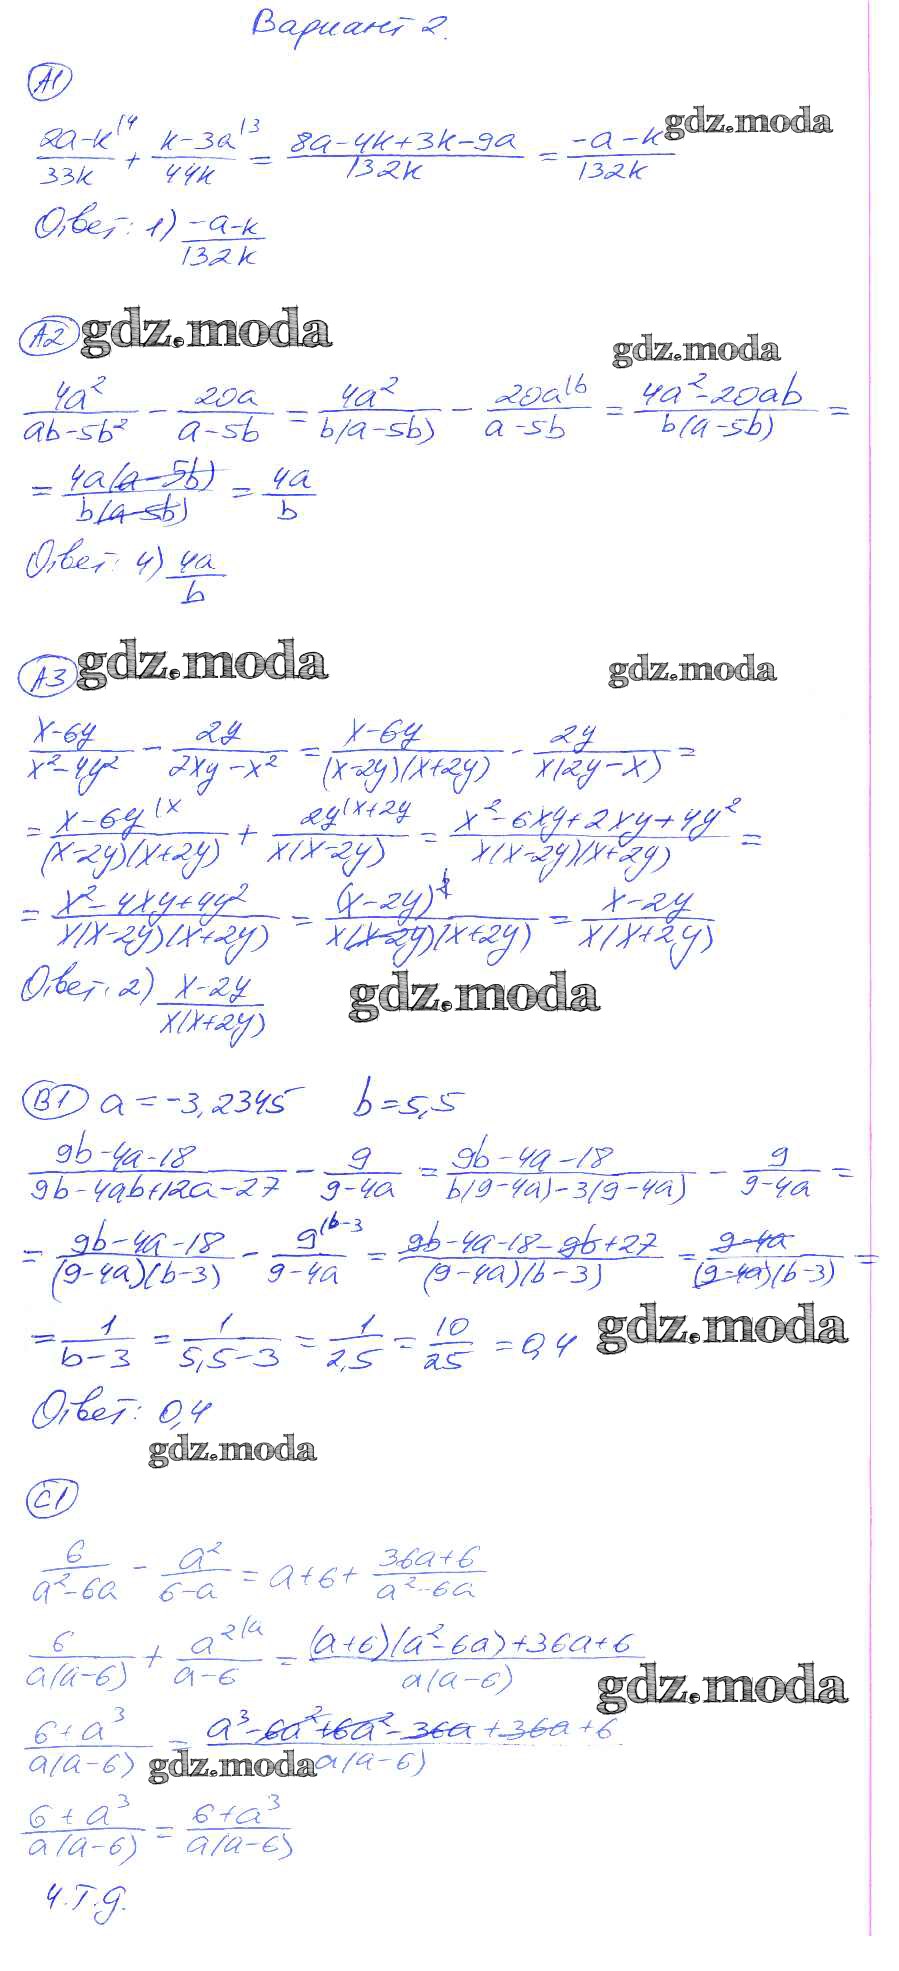 Вариант 2.
А1
(2a-к)/33к |4 + (к-3a)/44к |3 = (8a-4к+3к-9a)/132к = (-a-к)/132к gdz.moda
Ответ: 1) (-a-к)/132к
А2 gdz.moda
gdz.moda
4a²/(ab-5b²) - 20a/(a-5b) = 4a²/(b(a-5b)) - 20a/(a-5b) |b = (4a²-20ab)/(b(a-5b)) =
= 4a(a-5b)/(b(a-5b)) = 4a/b
Ответ: 4) 4a/b
А3 gdz.moda
gdz.moda
(x-6y)/(x²-4y²) - 2y/(2xy-x²) = (x-6y)/((x-2y)(x+2y)) - 2y/(x(2y-x)) =
= (x-6y)/((x-2y)(x+2y)) |x + 2y/(x(x-2y)) |x+2y = (x²-6xy+2xy+4y²)/(x(x-2y)(x+2y)) =
= (x²-4xy+4y²)/(x(x-2y)(x+2y)) = (x-2y)²/(x(x-2y)(x+2y)) = (x-2y)/(x(x+2y))
Ответ: 2) (x-2y)/(x(x+2y)) gdz.moda
В1 a=-3,2345 b=5,5
(9b-4a-18)/(9b-4ab+12a-27) - 9/(9-4a) = (9b-4a-18)/(b(9-4a)-3(9-4a)) - 9/(9-4a) =
= (9b-4a-18)/((9-4a)(b-3)) - 9/(9-4a) |b-3 = (9b-4a-18-9b+27)/((9-4a)(b-3)) = (9-4a)/((9-4a)(b-3)) =
= 1/(b-3) = 1/(5,5-3) = 1/2,5 = 10/25 = 0,4 gdz.moda
Ответ: 0,4
gdz.moda
С1
6/(a²-6a) - a²/(6-a) = a+6+ (36a+6)/(a²-6a)
6/(a(a-6)) + a²/(a-6) |a = ((a+6)(a²-6a)+36a+6)/(a(a-6)) gdz.moda
(6+a³)/(a(a-6)) = (a³-6a²+6a²-36a+36a+6)/(a(a-6))
gdz.moda
(6+a³)/(a(a-6)) = (6+a³)/(a(a-6))
ч.т.д.